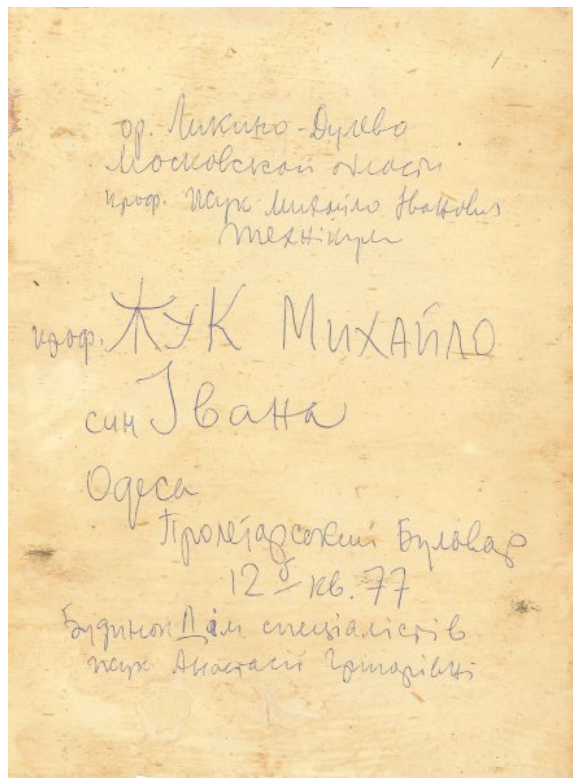 ор. Ликино-Дулево
Московской области
проф. Жук Михайло Іванович
технікум
проф. ЖУК МИХАЙЛО
син Івана
Одеса
Пролетарський Бульвар
12 б кв. 77
Будинок Дім спеціалістів
Жук Анастасії Григорівні